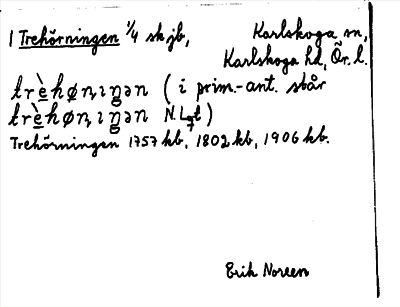 1 Trehörningen 1/4 sk jb, Karlskoga sn,
Karlskoga hd, Ör. l.
trèhøn,ıŋən ( i prim.-ant. står
trèhøn,ıŋən
Trehörningen 1757 kb, 1802 kb, 1906 kb.
Erik Noreen